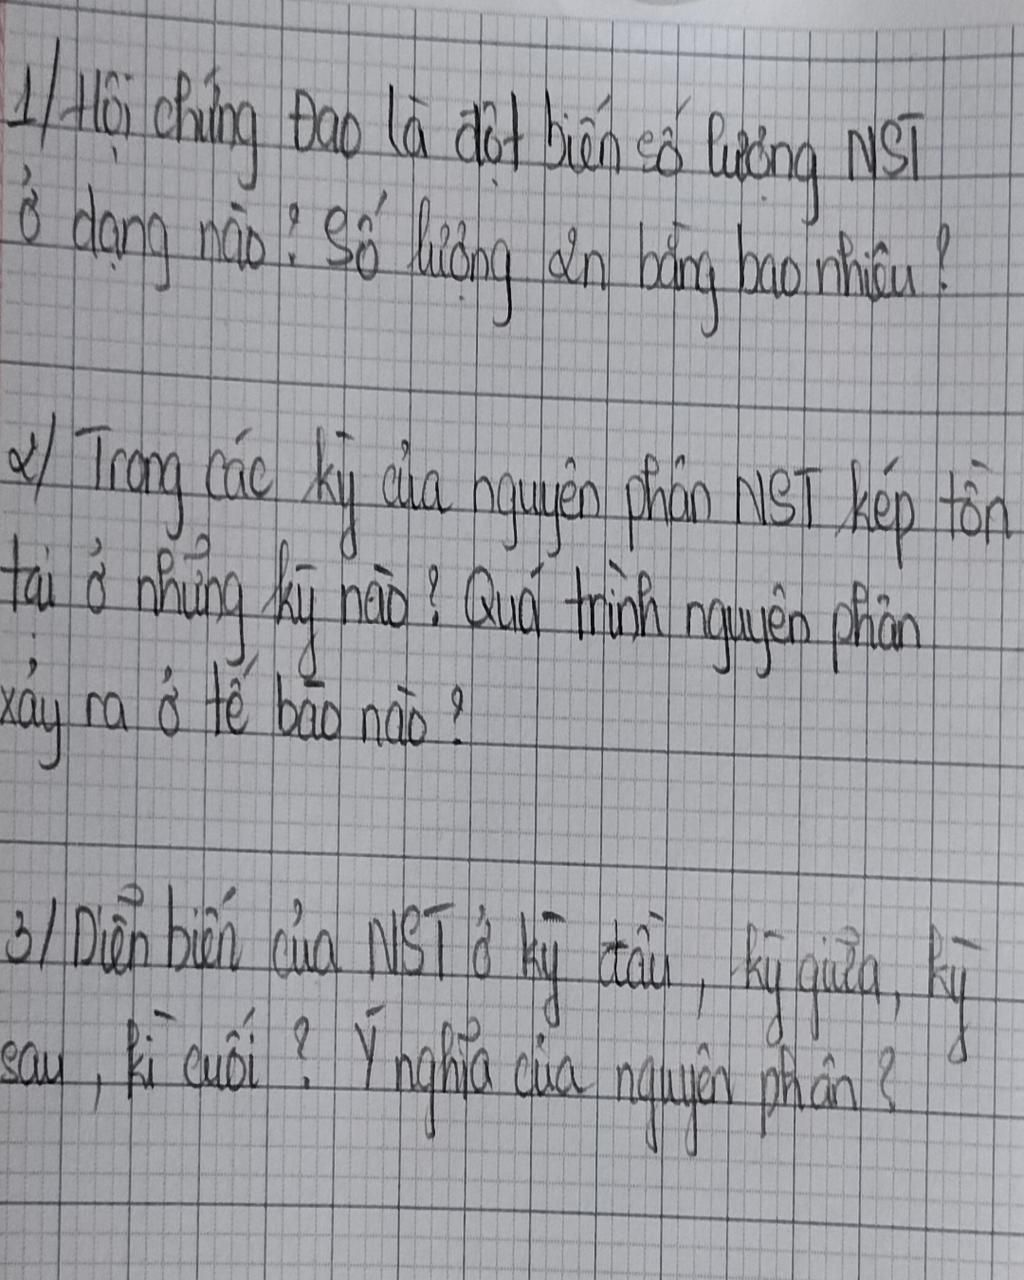 1/ Hội chứng Đao là đột biến số lượng NST
ở dạng nào? Số lượng 2n bằng bao nhiêu?
2/ Trong các kỳ của nguyên phân NST kép tồn
tại ở những kỳ nào? Quá trình nguyên phân
xảy ra ở tế bào nào?
3/ Diễn biến của NST ở kỳ đầu, kỳ giữa, kỳ
sau, kì cuối? Ý nghĩa của nguyên phân?